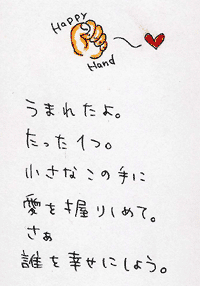 Happy
Hand
うまれたよ。
たった1つ。
小さなこの手に
愛を握りしめて。
さぁ
誰を幸せにしよう。